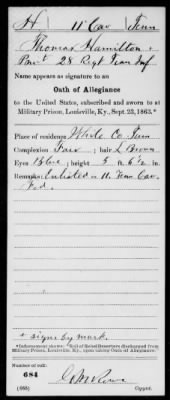 H 11 Cav Tenn
Thomas Hamilton +
Priv't 28 Regt Tenn Inf
Name appears as signature to an
Oath of Allegiance
to the United States, subscribed and sworn to at
Military Prison, Louisville, Ky., Sept. 23, 1863.*
Place of residence White Co. Tenn
Complexion Fair ; hair L Brown
Eyes Blue ; height 5 ft. 6½ in.
Remarks: Enlisted in 11. Tenn Cav.
Fed.
+ signs by mark.
Military Prison, Louisville, Ky., upon taking Oath of Allegiance.
Number of roll:
684
(665) Copyist.